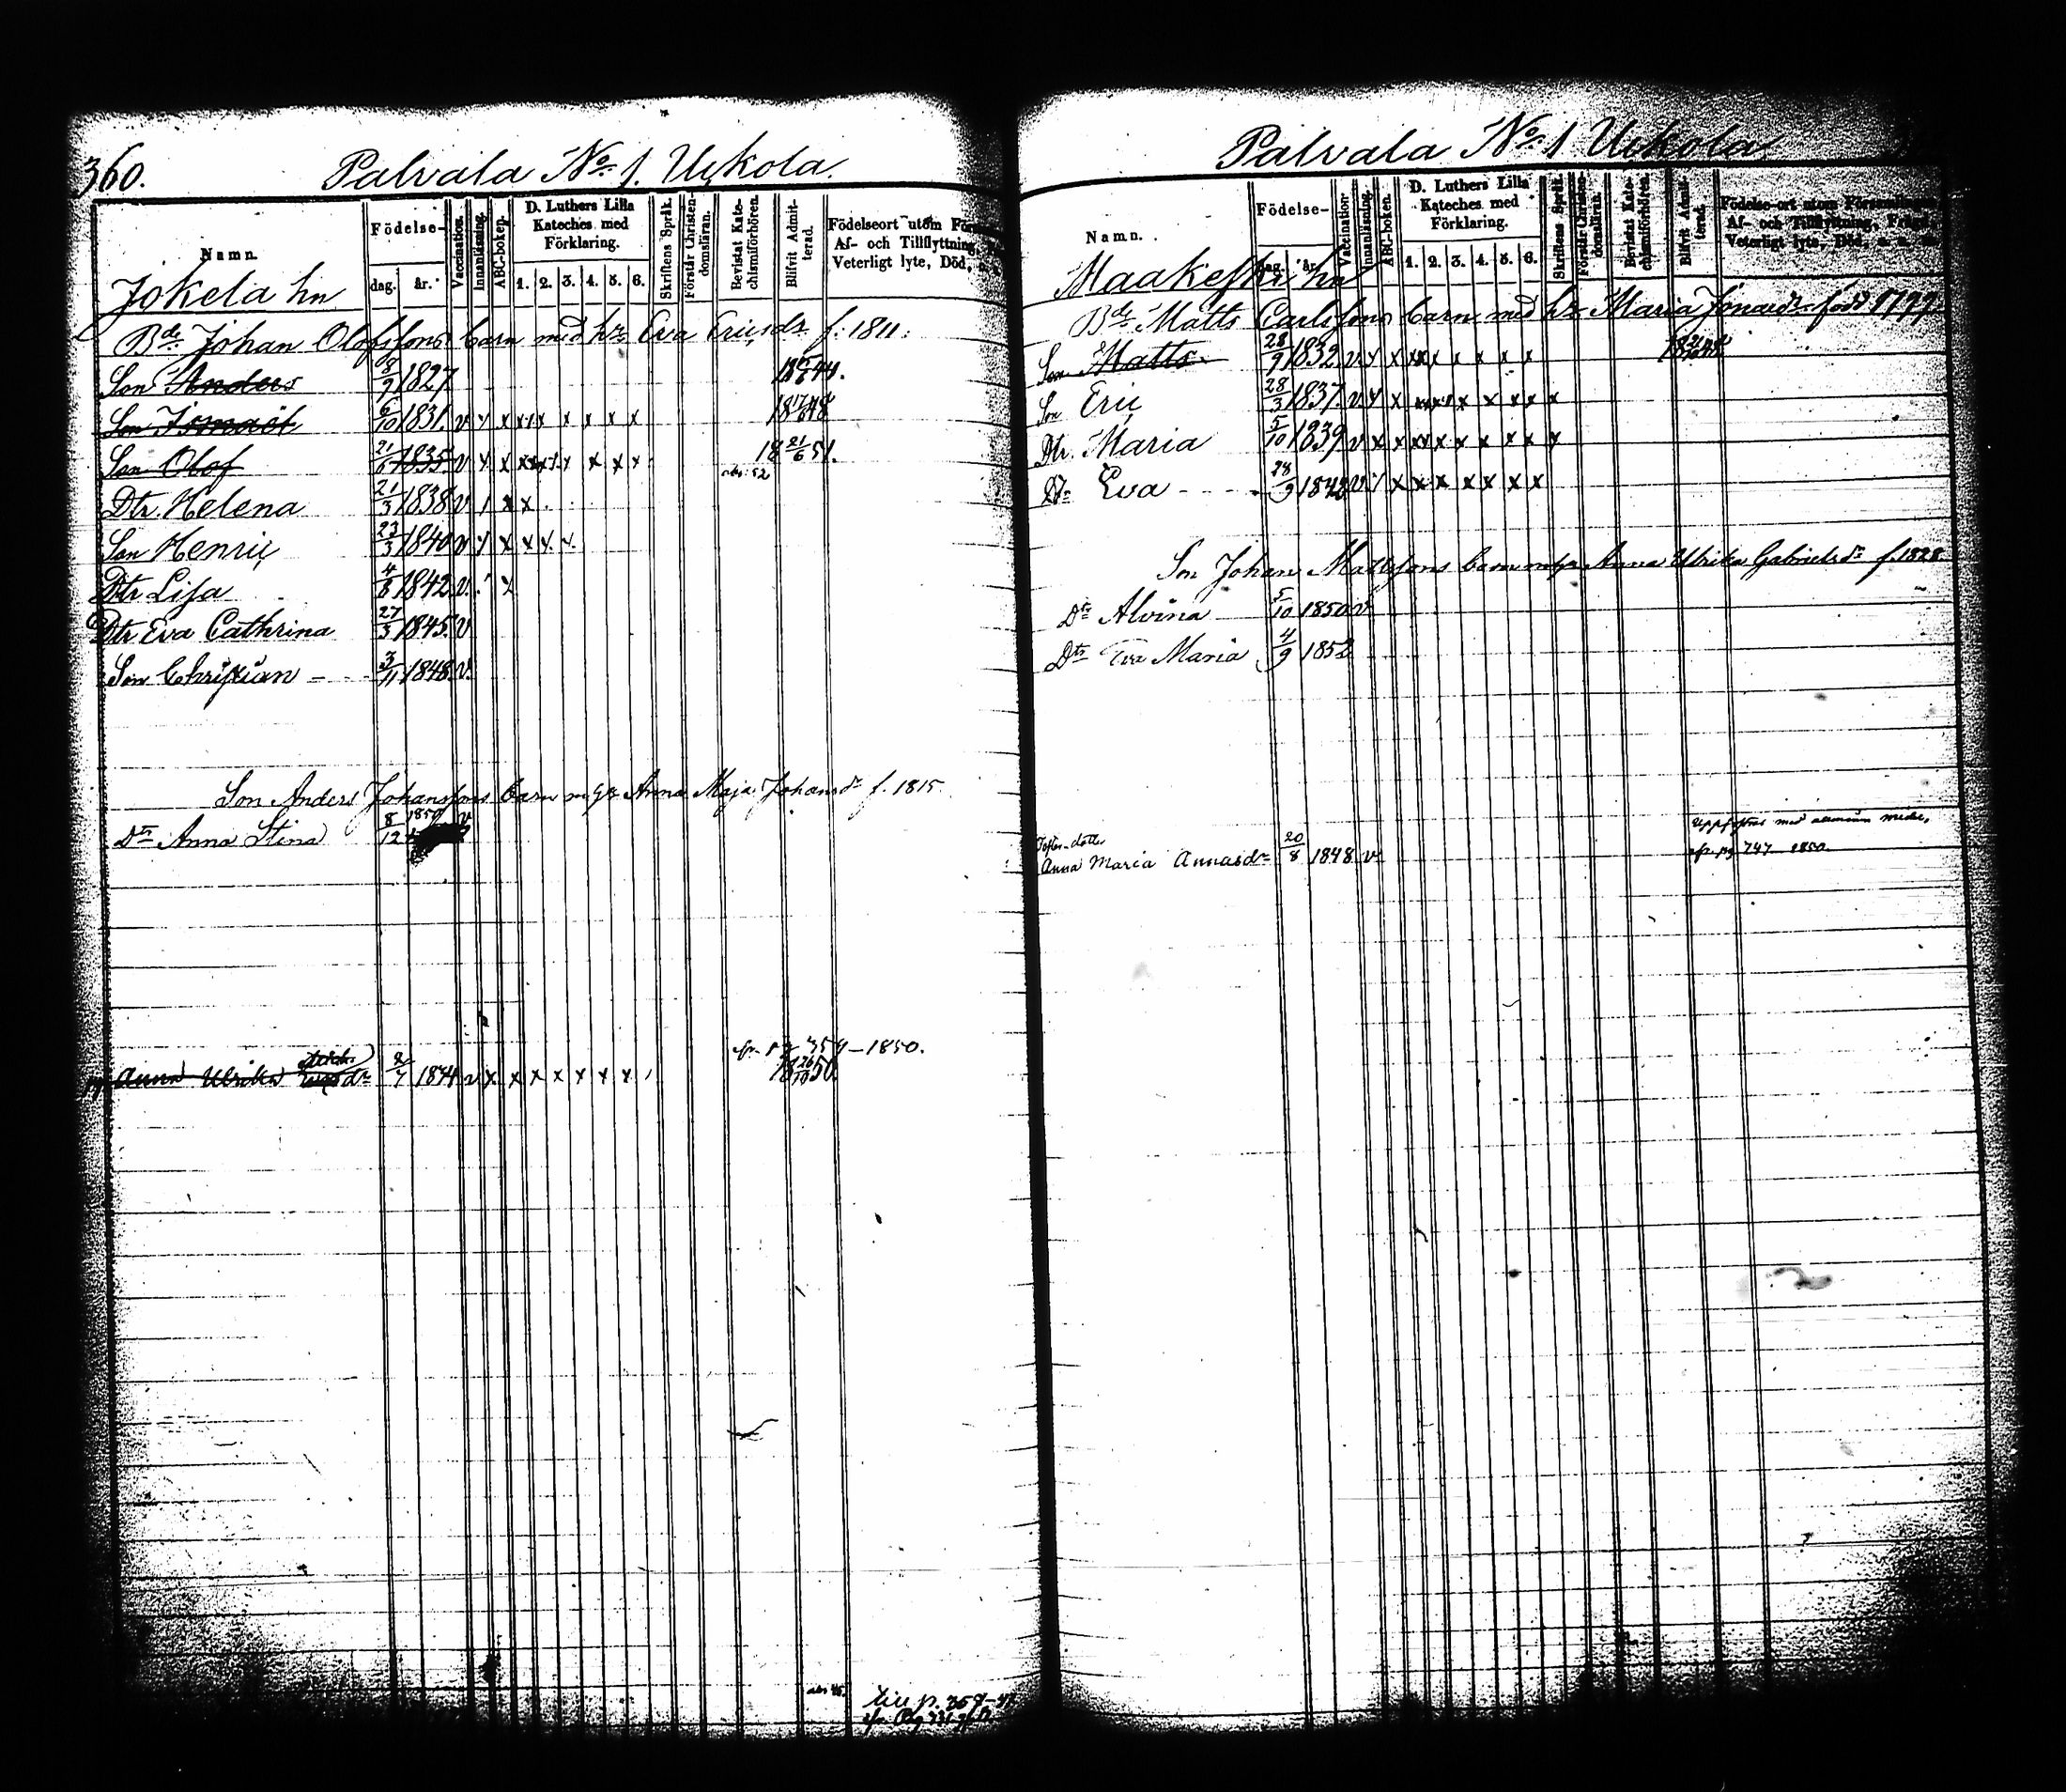 360.
Palvala No. 1. Uckola.
Namn.
Födelse-
dag. år.
Vaccination.
Innanläsning.
ABC-boken.
D. Luthers Lilla Kateches med Förklaring.
1. 2. 3. 4. 5. 6.
Skriftens Språk.
Förstår Christendomsläran.
Bevistat Katechismiförhören.
Blifvit Admitterad.
Födelseort utom För
Af- och Tillflyttning,
Veterligt lyte, Död,
Jokela hn
Bde Johan Olofssons barn med hr Eva Ericsdr f: 1811:
Son Anders 8/9 1827 1844.
Son Ismaël 6/10 1831. v y x x x x x x x 1848
Son Olof 21/6 1835 v y x x x x y x x x 18 21/6 51.
abs. 52
Dtr. Helena 21/3 1838 v / x x
Son Henric 23/3 1840 v y x x x x
Dtr Lisa 4/8 1842 v. x
Dtr Eva Cathrina 27/3 1845. v
Son Christian 3/11 1848. v.
Son Anders Johanssons barn m hr Anna Maja Johansdr f. 1815
Dtr Anna Stina 8/12 1850 v
Anna Ulrika 2/7 1834 v x x x x x x x
359 – 1850.
18 50.
abs
till p. 359
Palvala No. 1 Uckola
Namn.
Födelse-
dag. år.
Vaccination.
Innanläsning.
ABC-boken.
D. Luthers Lilla Kateches med Förklaring.
1. 2. 3. 4. 5. 6.
Skriftens Språk.
Förstår Christendomsläran.
Bevistat Katechismiförhören.
Blifvit Admitterad.
Födelse-ort utom Församlingen,
Af- och Tillflyttning, Frägd,
Veterligt lyte, Död,
Maakeski hn
Bde Matts Carlssons barn med hr Maria Jonasdr född 1799
Son Matts 28/9 1832. v y x x x x x x x
Son Eric 28/3 1837. v y x x x x x x x
Dtr. Maria 5/10 1839 v x x x x x x x x x
Dr Eva 28/9 1842 v y x x x x x x x
Son Johan Mattssons barn m hr Anna Ulrika Gabrielsdr f. 1828
Dtr Alvina 5/10 1850 v
Dtr Eva Maria 4/9 1852
dotter
Anna Maria Annasdr 20/8 1848 v
med
pg 747 1850